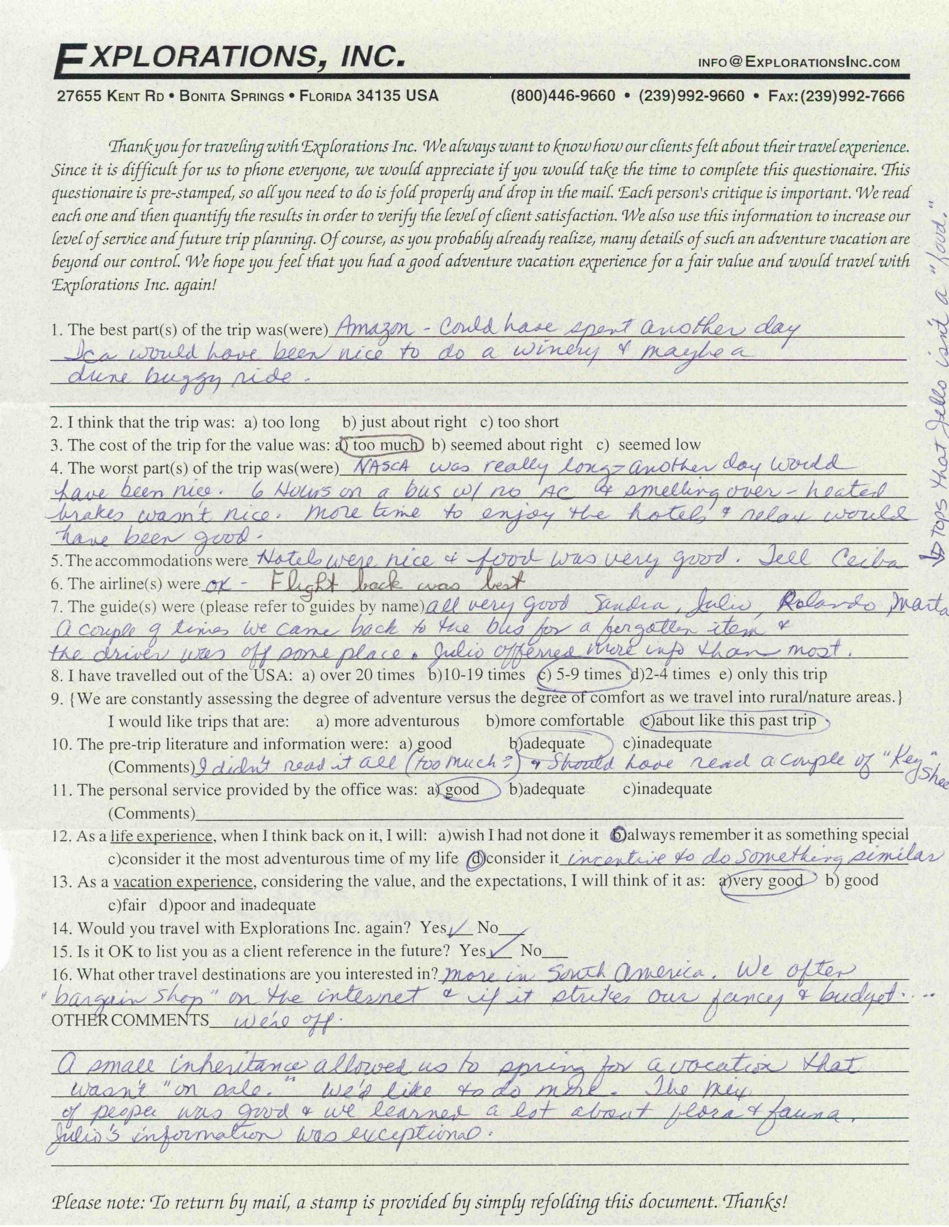 EXPLORATIONS, INC.
INFO@EXPLORATIONSINC.COM
27655 KENT RD • BONITA SPRINGS • FLORIDA 34135 USA (800)446-9660 • (239)992-9660 • FAX:(239)992-7666
Thank you for traveling with Explorations Inc. We always want to know how our clients felt about their travel experience.
Since it is difficult for us to phone everyone, we would appreciate if you would take the time to complete this questionaire. This
questionaire is pre-stamped, so all you need to do is fold properly and drop in the mail. Each person's critique is important. We read
each one and then quantify the results in order to verify the level of client satisfaction. We also use this information to increase our
level of service and future trip planning. Of course, as you probably already realize, many details of such an adventure vacation are
beyond our control. We hope you feel that you had a good adventure vacation experience for a fair value and would travel with
Explorations Inc. again!
1. The best part(s) of the trip was(were) Amazon - Could have spent another day
Ica would have been nice to do a winery & maybe a
dune buggy ride.
2. I think that the trip was: a) too long b) just about right c) too short
3. The cost of the trip for the value was: a) too much b) seemed about right c) seemed low
4. The worst part(s) of the trip was(were) NASCA was really long - another day would
have been nice. 6 Hours on a bus w/ no AC & smelling over-heated
brakes wasn't nice. More time to enjoy the hotels & relax would
have been good.
5. The accommodations were Hotels were nice & food was very good. Tell Ceiba
→ TOPS that Jello isn't a "food."
6. The airline(s) were ok - Flight back was best
7. The guide(s) were (please refer to guides by name) all very good Sandra, Julio, Rolando Marta
A couple of times we came back to the bus for a forgotten item &
the driver was off some place. Julio offerred more info than most.
8. I have travelled out of the USA: a) over 20 times b)10-19 times c) 5-9 times d)2-4 times e) only this trip
9. {We are constantly assessing the degree of adventure versus the degree of comfort as we travel into rural/nature areas.}
I would like trips that are: a) more adventurous b)more comfortable c)about like this past trip
10. The pre-trip literature and information were: a) good b)adequate c)inadequate
(Comments) I didn't read it all (too much?) & should have read a couple of "Key" Shee
11. The personal service provided by the office was: a) good b)adequate c)inadequate
(Comments)
12. As a life experience, when I think back on it, I will: a)wish I had not done it b)always remember it as something special
c)consider it the most adventurous time of my life d)consider it incentive to do something similar
13. As a vacation experience, considering the value, and the expectations, I will think of it as: a)very good b) good
c)fair d)poor and inadequate
14. Would you travel with Explorations Inc. again? Yes✓ No
15. Is it OK to list you as a client reference in the future? Yes✓ No
16. What other travel destinations are you interested in? more in South America. We often
"bargain shop" on the internet & if it strikes our fancy & budget....
OTHER COMMENTS we're off.
A small inheritance allowed us to spring for a vacation that
wasn't "on sale." We'd like to do more. The mix
of people was good & we learned a lot about flora & fauna.
Julio's information was exceptional.
Please note: To return by mail, a stamp is provided by simply refolding this document. Thanks!